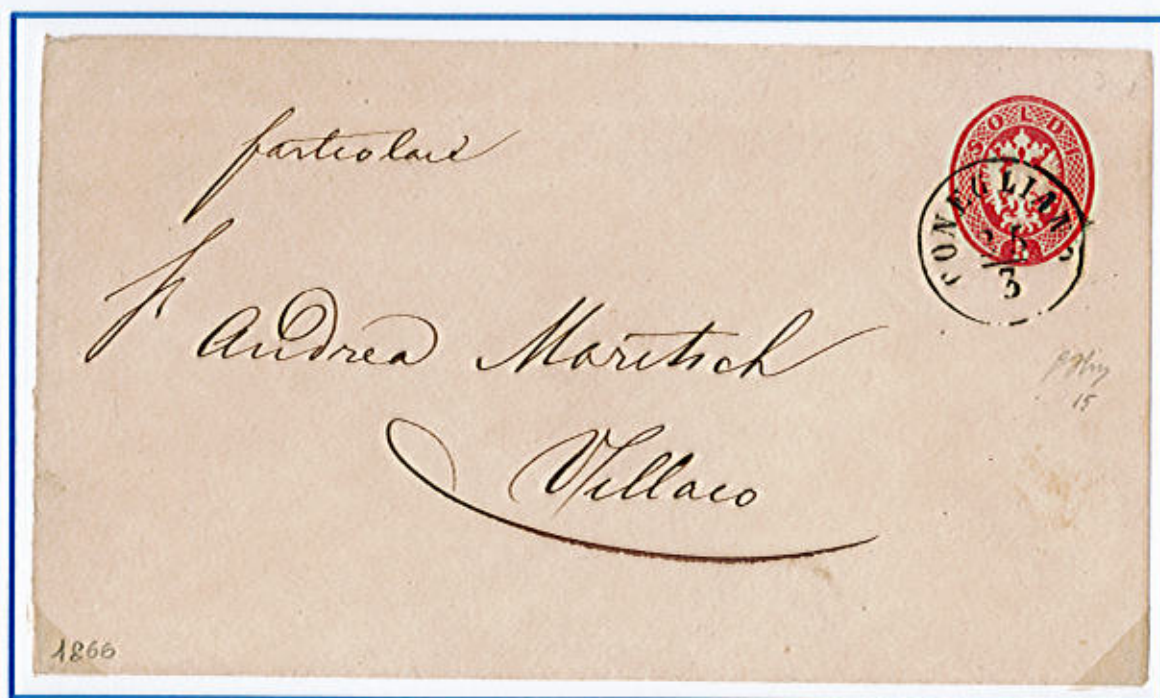 particolare
SOLDI
CONEGLIANO
5
3
Andrea Moritsch
15
Villaco
1866